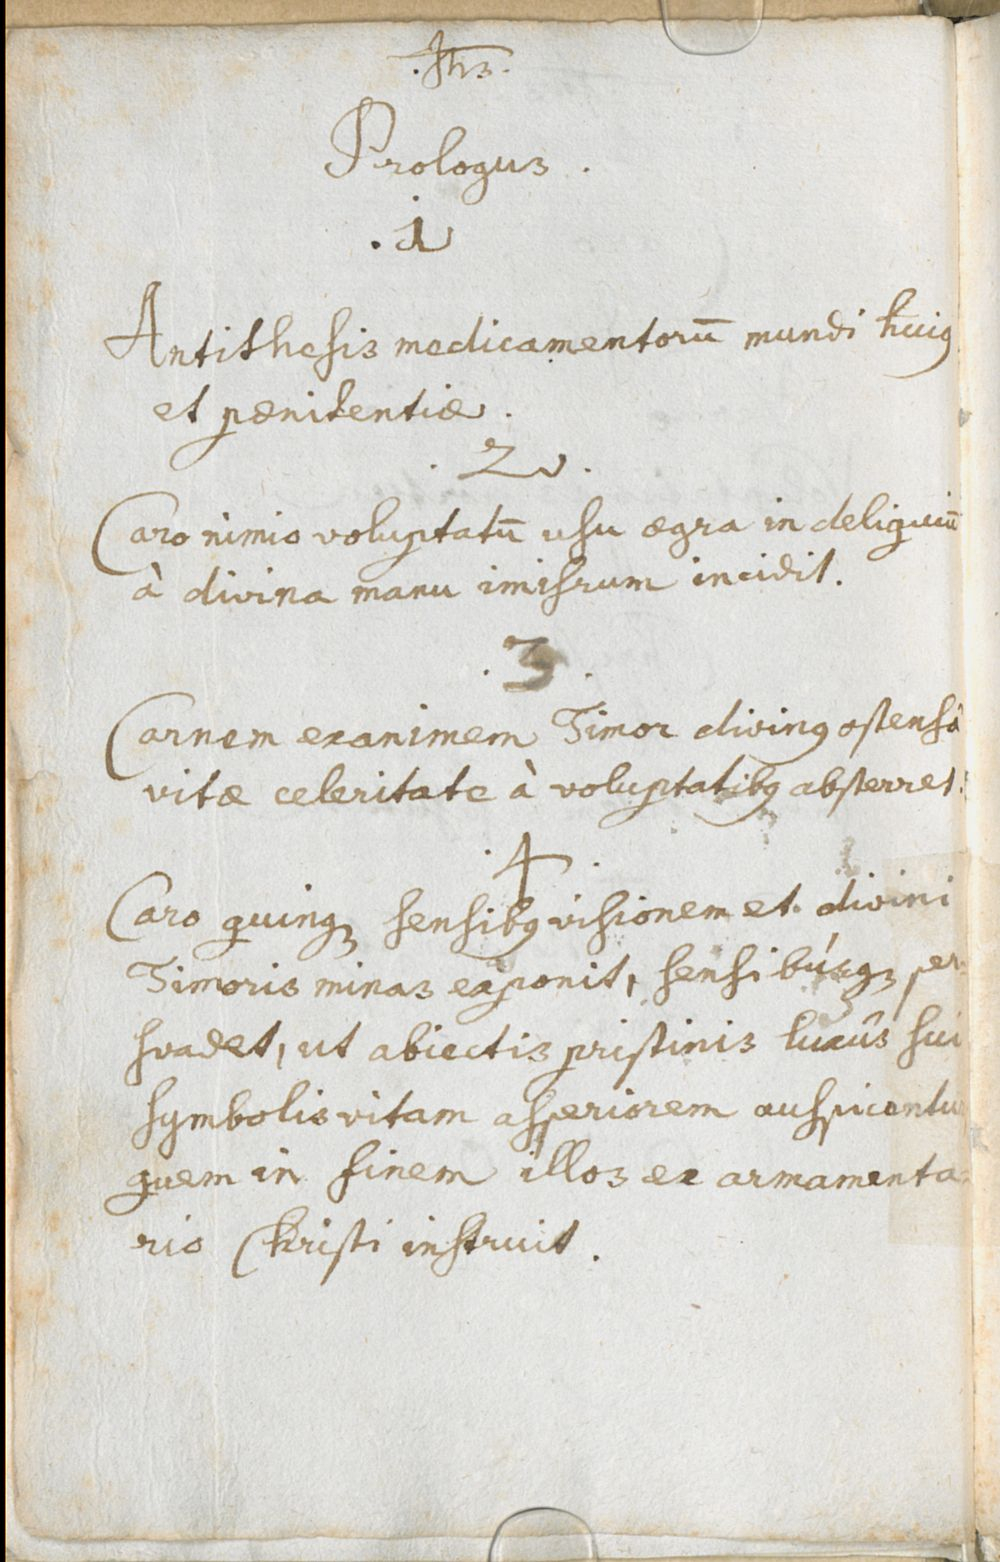 .Jħs.
Prologus.
.1
Antithesis medicamentorū mundi huiꝰ
et pœnitentiæ.
.2.
Caro nimio voluptatū usu ægra in deliquiū
à divina manu imissum incidit.
.3.
Carnem exanimem Timor divinꝰ ostensâ
vitæ celeritate à voluptatibꝰ absterret.
.4.
Caro quinqꝫ sensibꝰ visionem et divini
Timoris minas exponit, sensibúsqꝫ per-
suadet, ut abiectis pristinis luxûs sui
symbolis vitam asperiorem auspicentur
quem in finem illos ex armamenta-
rio Christi instruit.